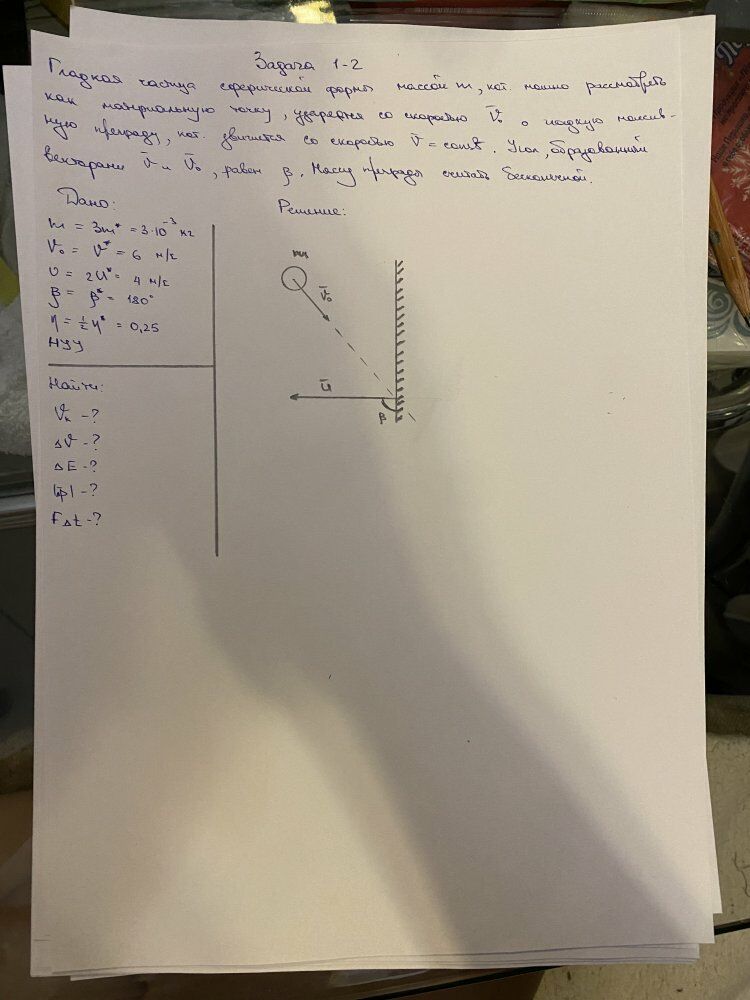 Задача 1-2
Гладкая частица сферической формы массой m, кот. можно рассмотреть
как материальную точку, ударяется со скоростью V̄₀ о гладкую массив-
ную преграду, кот. движется со скоростью V̄ = const. Угол, образованный
векторами V̄ и V̄₀, равен β. Массу преграды считать бесконечной.
Дано:
m = 3m* = 3·10⁻³ кг
V₀ = V* = 6 м/с
U = 2U* = 4 м/с
β = β* = 180°
η = ½η* = 0,25
НУУ
Найти:
Vк -?
ΔV -?
ΔE -?
|Δp̄| -?
FΔt -?
Решение:
m
V̄₀
ū
β